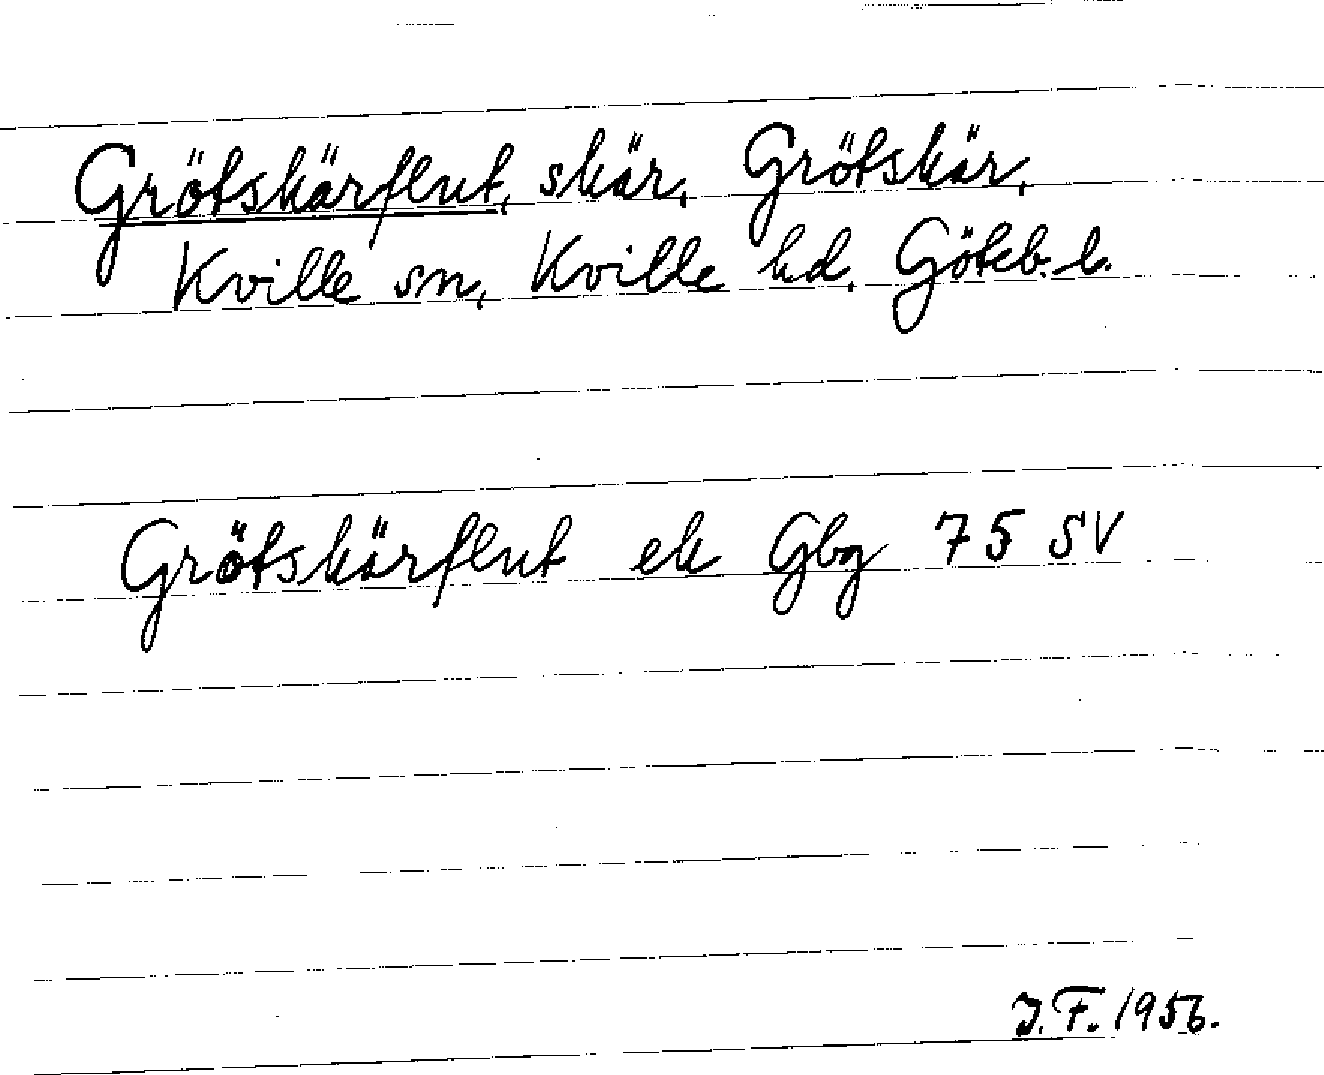 Grötskärflut, skär, Grötskär,
Kville sn, Kville hd, Göteb. l.
Grötskärflut ek Gbg 75 SV
J.F. 1956.